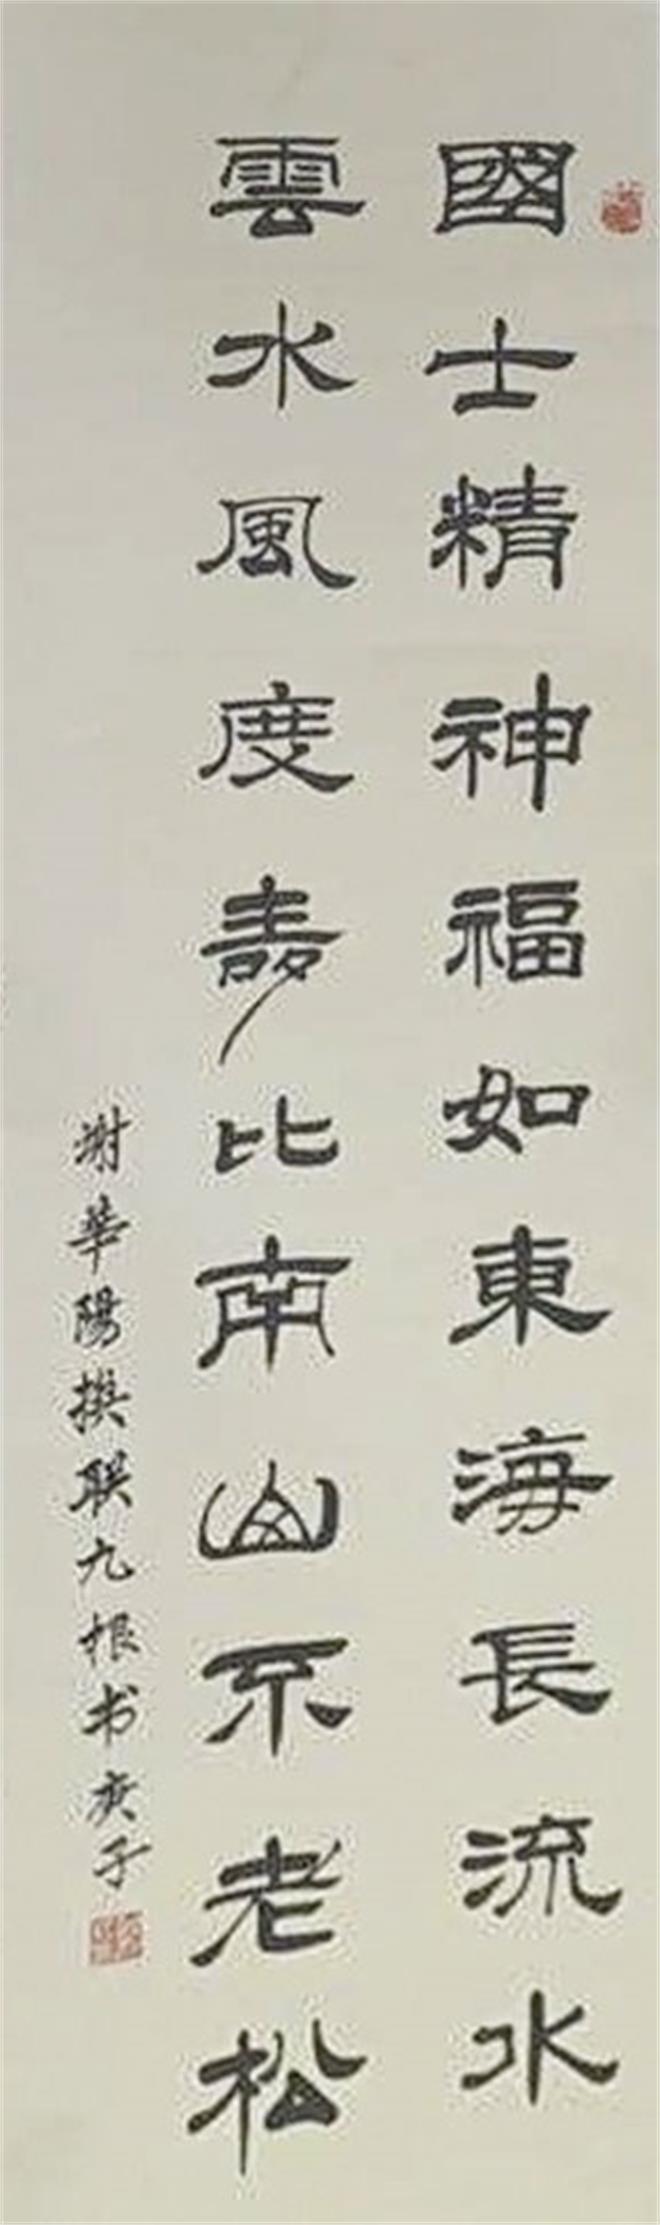 國士精神福如東海長流水
雲水風度壽比南山不老松
謝華陽撰联九根书庚子